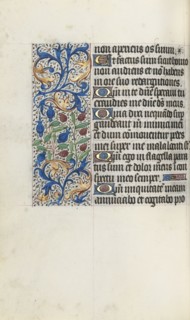 non aperiens os suum.
Et factus sum sicut homo
non audiens et nõ habens
in ore suo redargutiones.
Qm̃ in te dñe speravi tu
exaudies me dñe dẽs meus.
Quia dixi nequãdo sup
gaudeant m̃ inimici mei
et dum cõmoventur pedes
mei super me magna locuti sũt
Qm̃ ego in flagella para
tus sum et dolor meus ĩ con
spectu meo semper.
Qm̃ iniquitatẽ meam
annũciabo et cogitabo pro